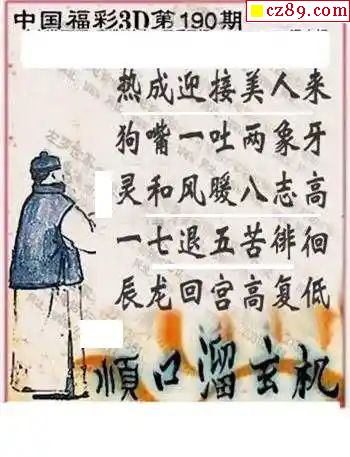 cz89.com
中国福彩3D第190期
热成迎接美人来
狗嘴一吐两象牙
灵和风暖八志高
一七退五苦徘徊
辰龙回宫高复低
顺口溜玄机